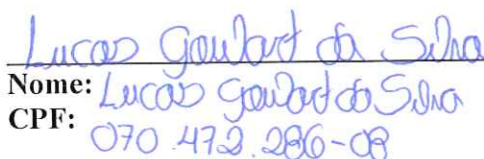 Lucas Goulart da Silva
Nome: Lucas Goulart da Silva
CPF:
070.472.286-08